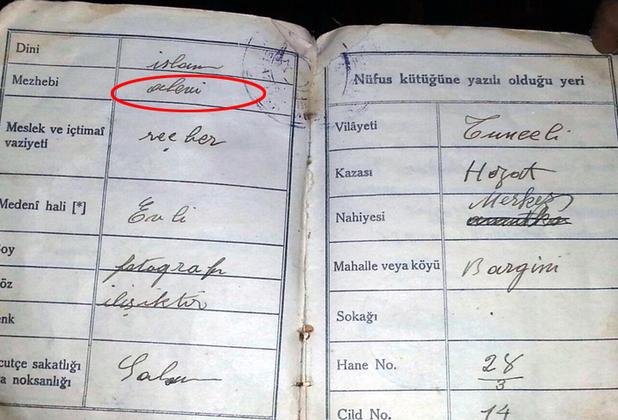 Dini islam
Mezhebi alevi
Meslek ve içtimaî
vaziyeti reçber
Medenî hali [*] Evli
oy fotograf
öz ilişiktir
enk
cutçe sakatlığı
a noksanlığı Salim
Nüfus kütüğüne yazılı olduğu yeri
Vilâyeti Tunceli
Kazası Hozat
Nahiyesi Merkez
Mahalle veya köyü Bargini
Sokağı
Hane No. 28/3
Cild No. 14